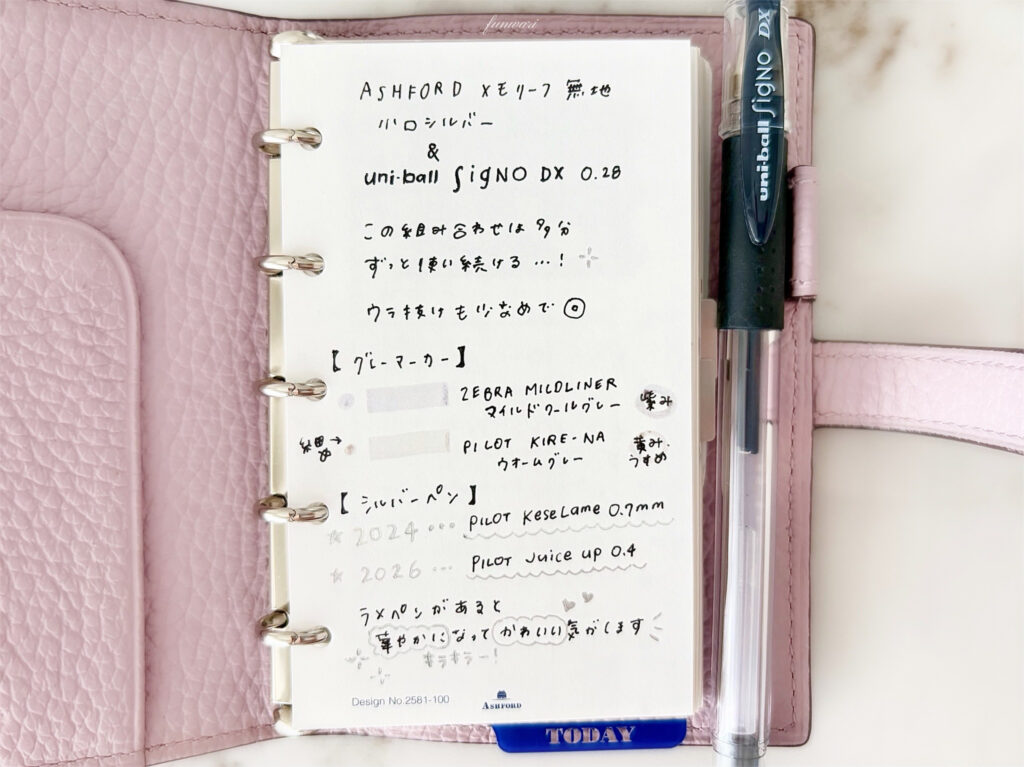 funwari
ASHFORD メモリーフ 無地
小口シルバー
&
uni-ball SigNO DX 0.28
この組み合わせは多分
ずっと使い続ける…！
ウラ抜けも少なめで◎
【グレーマーカー】
ZEBRA MILDLINER 紫み
マイルドクールグレー
結果→ PILOT KIRE-NA 黄み.
ウオームグレー うすめ
【シルバーペン】
☆2024… PILOT Keselame 0.7mm
☆2026… PILOT Juice up 0.4
ラメペンがあると
華やかになってかわいい気がします
キラキラー！
Design No.2581-100
ASHFORD
TODAY
uni-ball SigNO DX